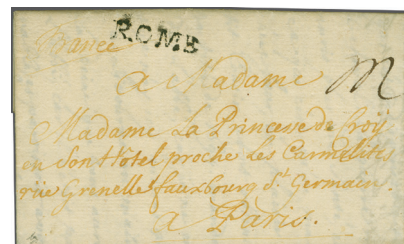 France
ROME
a Madame
Madame La Princesse de Croÿ
en Son Hotel proche Les Carmelites
rüe Grenelle fauxbourg St. Germain.
a Paris.